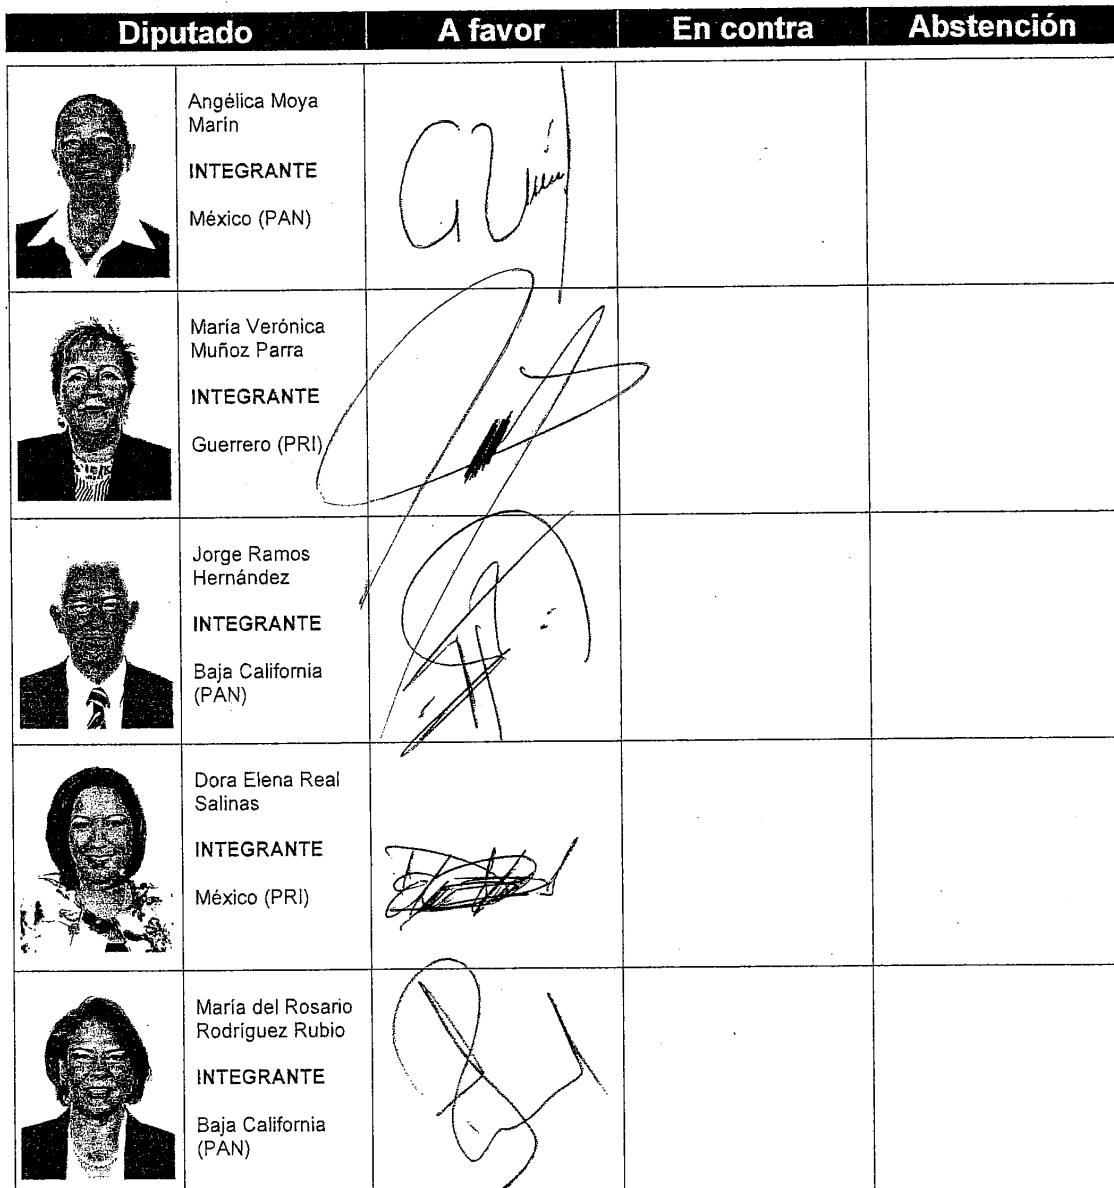 Diputado A favor En contra Abstención
Angélica Moya
Marín
INTEGRANTE
México (PAN)
María Verónica
Muñoz Parra
INTEGRANTE
Guerrero (PRI)
Jorge Ramos
Hernández
INTEGRANTE
Baja California
(PAN)
Dora Elena Real
Salinas
INTEGRANTE
México (PRI)
María del Rosario
Rodríguez Rubio
INTEGRANTE
Baja California
(PAN)